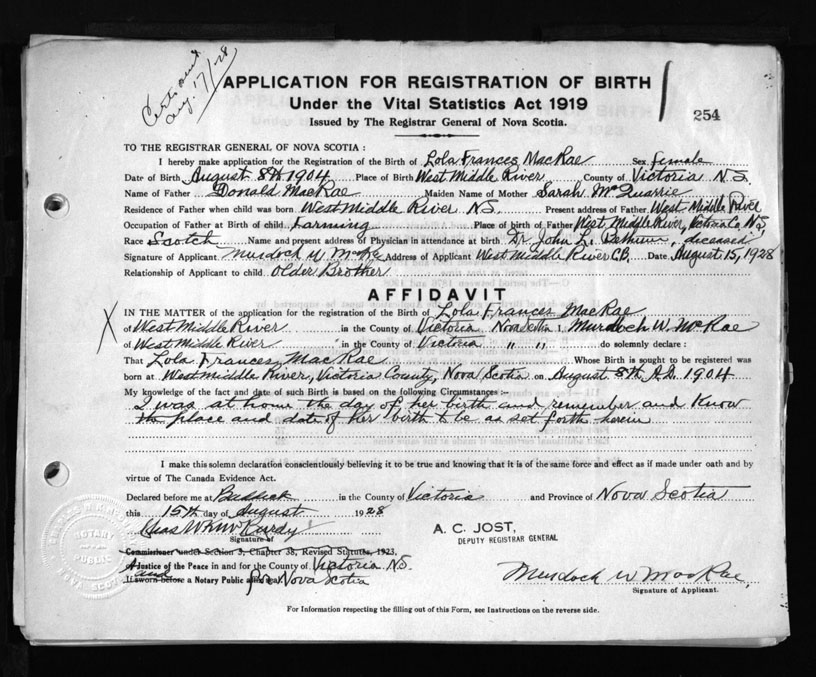 Aug 17/28
APPLICATION FOR REGISTRATION OF BIRTH
Under the Vital Statistics Act 1919
Issued by The Registrar General of Nova Scotia.
254
TO THE REGISTRAR GENERAL OF NOVA SCOTIA :
I hereby make application for the Registration of the Birth of Lola Frances MacRae Sex female
Date of Birth August 8th 1904 Place of Birth West Middle River County of Victoria N.S.
Name of Father Donald MacRae Maiden Name of Mother Sarah McQuarrie
Residence of Father when child was born West Middle River N.S. Present address of Father West Middle River
Occupation of Father at Birth of child Farming Place of birth of Father West Middle River, Victoria Co. N.S.
Race Scotch Name and present address of Physician in attendance at birth Dr. John L. Bethune, deceased
Signature of Applicant Murdock W McRae Address of Applicant West Middle River C.B. Date August 15, 1928
Relationship of Applicant to child Older Brother
AFFIDAVIT
IN THE MATTER of the application for the registration of the Birth of Lola Frances MacRae
of West Middle River in the County of Victoria Nova Scotia I, Murdoch W. McRae
of West Middle River in the County of Victoria " " do solemnly declare :
That Lola Frances MacRae Whose Birth is sought to be registered was
born at West Middle River, Victoria County, Nova Scotia on August 8th A.D. 1904
My knowledge of the fact and date of such Birth is based on the following Circumstances :-
I was at home the day of her birth and remember and know
the place and date of her birth to be as set forth herein
I make this solemn declaration conscientiously believing it to be true and knowing that it is of the same force and effect as if made under oath and by
virtue of The Canada Evidence Act.
Declared before me at Baddeck in the County of Victoria and Province of Nova Scotia
this 15th day of August 1928
Signature of
A. C. JOST,
DEPUTY REGISTRAR GENERAL
Commissioner under Section 3, Chapter 38, Revised Statutes, 1923,
A Justice of the Peace in and for the County of Victoria N.S.
If sworn before a Notary Public for Nova Scotia
and
Murdoch W MacRae
Signature of Applicant.
NOTARY
PUBLIC
For Information respecting the filling out of this Form, see Instructions on the reverse side.